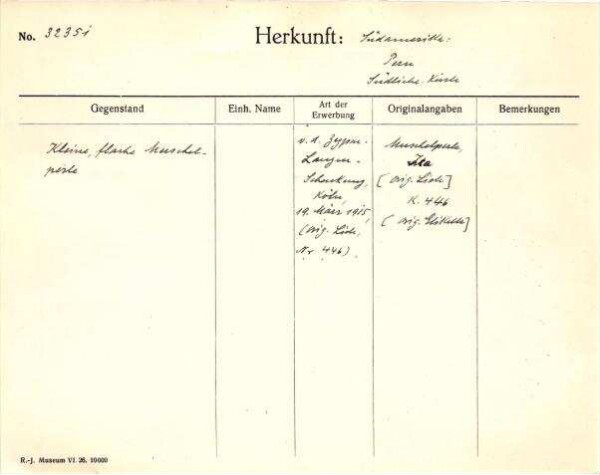 No. 32351
Herkunft:
Südamerika:
Peru
Südliche Küste
Gegenstand
Einh. Name
Art der Erwerbung
Originalangaben
Bemerkungen
Kleine, flache Muschel-
perle
v. d. Zypen-
Langen-
Schenkung,
Köln,
19. März 1915,
(Orig. Liste,
Nr 446)
Muschelperle,
Ica
[Orig. Liste]
K. 446
[Orig. Etikette]
R.-J. Museum VI. 26. 10000